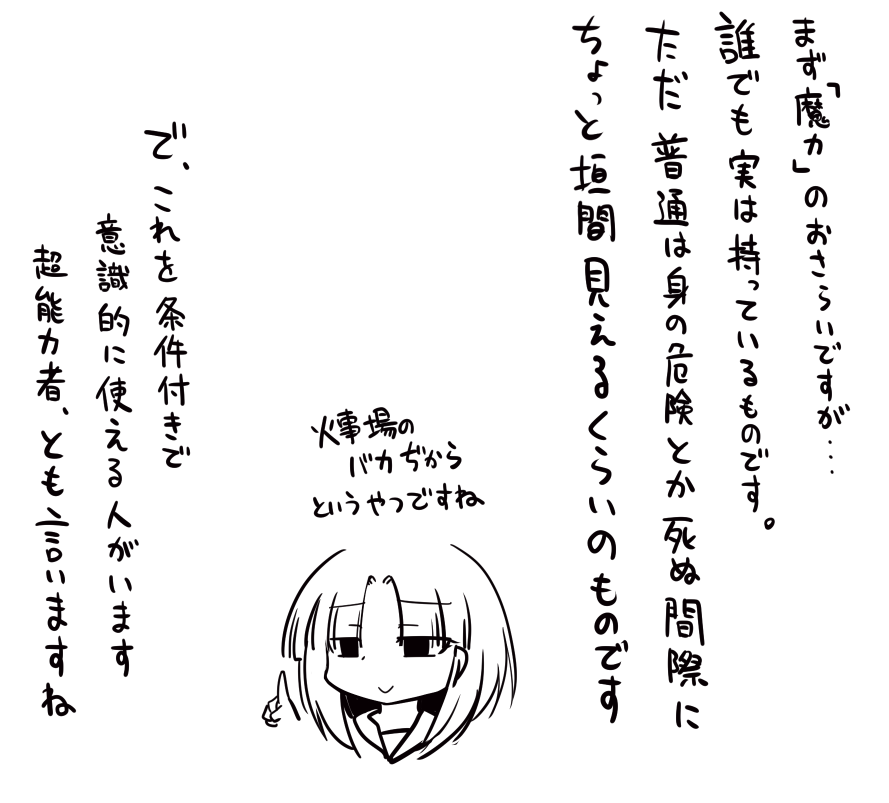 まず「魔力」のおさらいですが...
誰でも実は持っているものです。
ただ普通は身の危険とか死ぬ間際に
ちょっと垣間見えるくらいのものです
火事場の
バカぢから
というやつですね
で、これを条件付きで
意識的に使える人がいます
超能力者、とも言いますね